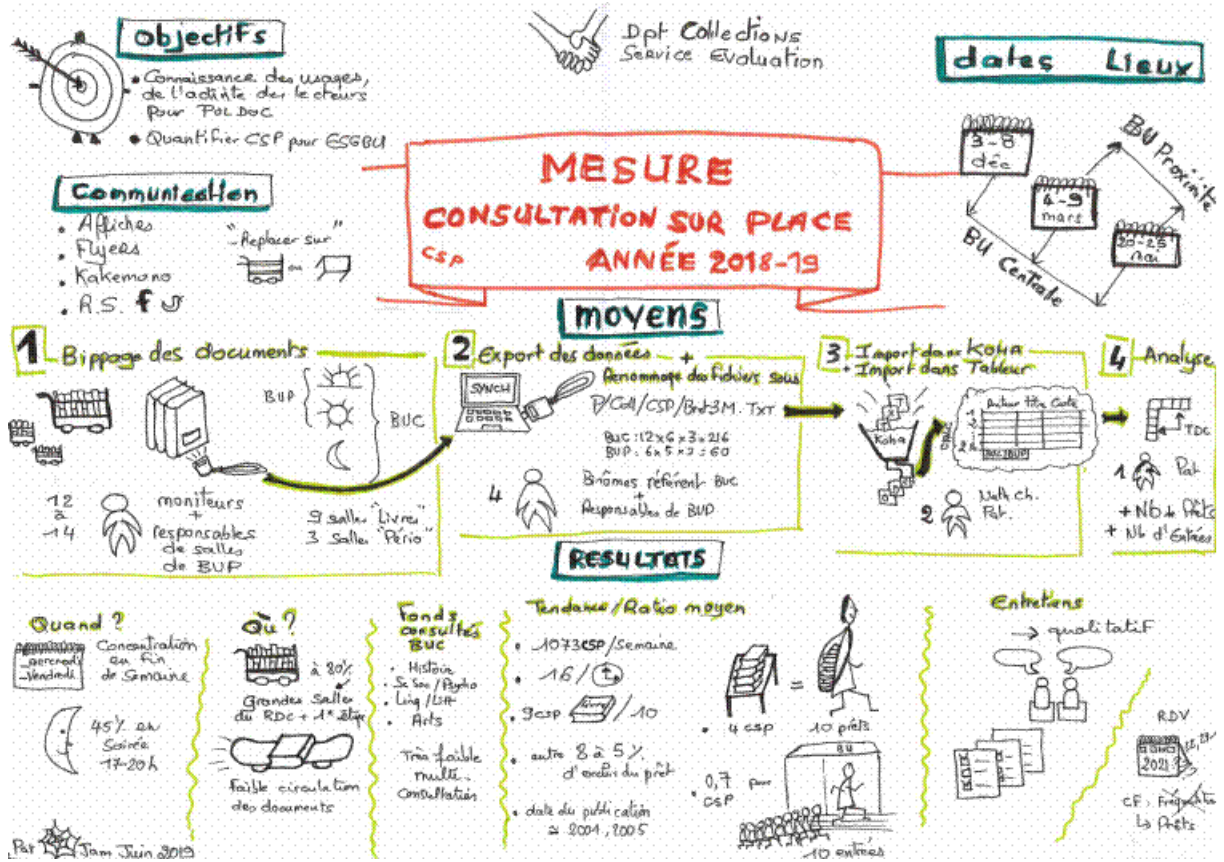 Objectifs
• Connaissance des usages,
de l'activité des lecteurs
pour POLDOC
• Quantifier CSP pour ESGBU
Dpt Collections
Service Evaluation
dates Lieux
3-8
déc
4-9
mars
20-25
mai
BU Proximité
BU Centrale
MESURE
CONSULTATION SUR PLACE
CSP ANNÉE 2018-19
Communication
• Affiches
• Flyers
• Kakemono
• R.S. f
"Replacer sur"
ou
moyens
1 Bippage des documents
BUP
BUC
12
à
14
moniteurs
+
responsables
de salles
de BUP
9 salles "Livres"
3 salles "Pério"
2 Export des données +
Renommage des fichiers sous
SYNCH
P/Coll/CSP/
BUC : 12 x 6 x 3 = 216
4
Binômes référent BUC
+
Responsables de BUP
3 Import dans KOHA
+ Import dans Tableur
Koha
Auteur titre Cote
2
Nath ch.
Pat.
4 Analyse
TDC
1
Pat
+ Nb de Prêts
+ Nb d'Entrées
RESULTATS
Quand ?
mercredi
vendredi
Concentration
en fin
de semaine
45% en
Soirée
17-20h
Où ?
à 80%
Grandes salles
du RDC + 1er étage
Faible circulation
des documents
Fonds
consultés
BUC
• Histoire
• Sc Soc/Psycho
• Ling/Litt
• Arts
Très faible
multi-
consultation
Tendance/Ratio moyen
• 1073 CSP/Semaine
• 16/
• 9 csp livre/10
• entre 8 à 5%
d'exclus du prêt
• date de publication
≃ 2001, 2005
• 4 csp
=
10 prêts
• 0,7 pour
CSP
BU
10 entrées
Entretiens
→ qualitatif
RDV
2021
CF. Fréquentation
↳ Prêts
Pat Jam Juin 2019